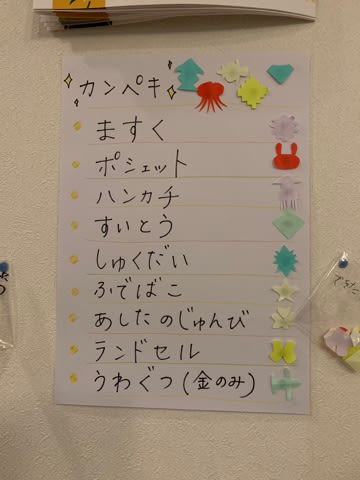 カンペキ
ますく
ポシェット
ハンカチ
すいとう
しゅくだい
ふでばこ
あしたのじゅんび
ランドセル
うわぐつ(金のみ)